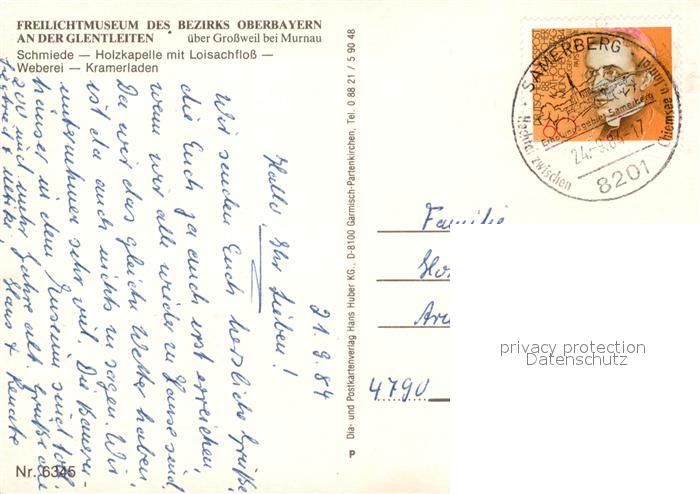 FREILICHTMUSEUM DES BEZIRKS OBERBAYERN
AN DER GLENTLEITEN über Großweil bei Murnau
Schmiede — Holzkapelle mit Loisachfloß —
Weberei — Kramerladen
21.9.84
Hallo, Ihr Lieben!
Wir senden Euch herzliche Grüße
die Euch ja auch erst erreichen,
wenn wir alle wieder zu Hause sind.
Da wir das gleiche Wetter haben,
ist da auch nichts zu sagen. Wir
unternehmen sehr viel. Die Bauern-
häuser in dem Museum sind toll.
200 und mehr Jahre alt. Grüße an
Hans + Renate
Nr. 6345
Dia- und Postkartenverlag Hans Huber KG., D-8100 Garmisch-Partenkirchen, Tel. 0 88 21 / 5 90 48
P
SAMERBERG
Erholungsgebiet Samerberg
Hochtal zwischen
Chiemsee u. Inntal
-17
8201
80
Familie
4790
privacy protection
Datenschutz